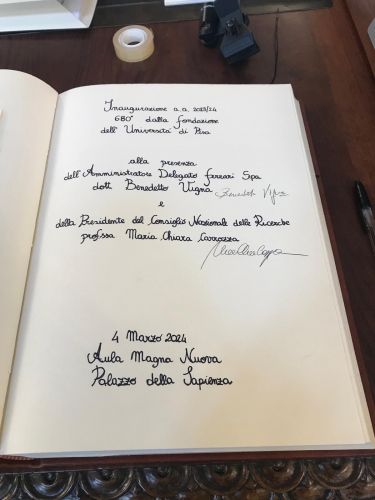 Inaugurazione a.a. 2023/24
680° dalla fondazione
dell'Università di Pisa
alla presenza
dell'Amministratore Delegato Ferrari Spa
dott. Benedetto Vigna Benedetto Vigna
e
della Presidente del Consiglio Nazionale delle Ricerche
prof.ssa Maria Chiara Carrozza
4 Marzo 2024
Aula Magna Nuova
Palazzo della Sapienza